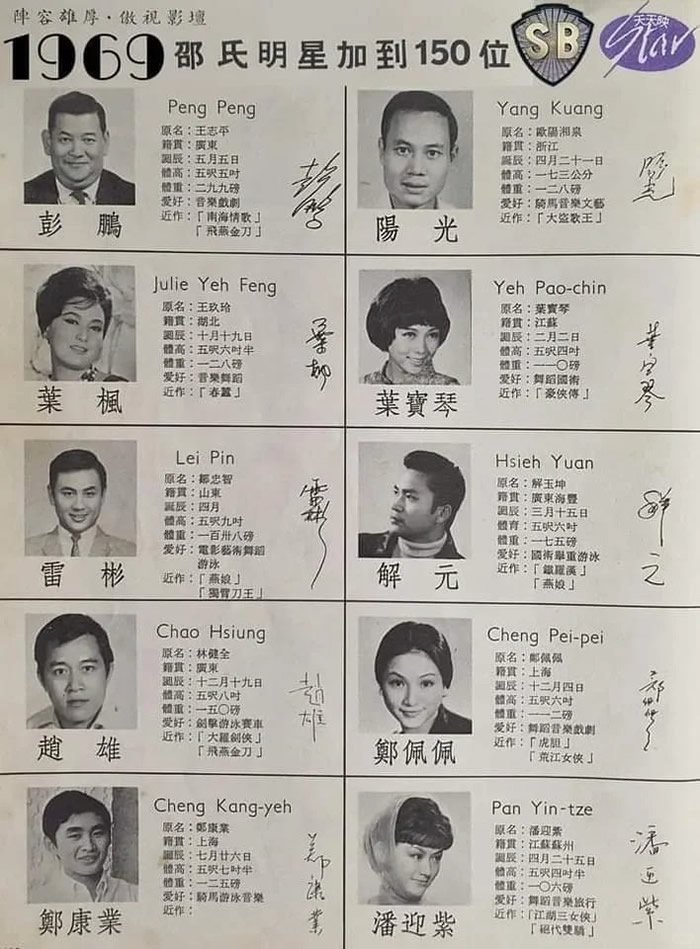 陣容雄厚·傲視影壇
1969 邵氏明星加到150位
SB
天天映
Star
Peng Peng
原名：王志平
籍貫：廣東
誕辰：五月五日
體高：五呎五吋
體重：二九九磅
愛好：音樂戲劇
近作：「南海情歌」
「飛燕金刀」
彭鵬
彭鵬
Yang Kuang
原名：歐陽湘泉
籍貫：浙江
誕辰：四月二十一日
體高：一七三公分
體重：一二八磅
愛好：騎馬音樂文藝
近作：「大盜歌王」
陽光
陽光
Julie Yeh Feng
原名：王玖玲
籍貫：湖北
誕辰：十月十九日
體高：五呎六吋半
體重：一二八磅
愛好：音樂舞蹈
近作：「春蠶」
葉楓
葉楓
Yeh Pao-chin
原名：葉寶琴
籍貫：江蘇
誕辰：二月二日
體高：五呎四吋
體重：一一〇磅
愛好：舞蹈國術
近作：「豪俠傳」
葉寶琴
葉宝琴
Lei Pin
原名：鄒忠智
籍貫：山東
誕辰：四月
體高：五呎九吋
體重：一百卅八磅
愛好：電影藝術舞蹈
游泳
近作：「燕娘」
「獨臂刀王」
雷彬
雷彬
Hsieh Yuan
原名：解玉坤
籍貫：廣東海豐
誕辰：三月十五日
體育：五呎六吋
體重：一七五磅
愛好：國術舉重游泳
近作：「鐵羅漢」
「燕娘」
解元
解元
Chao Hsiung
原名：林健全
籍貫：廣東
誕辰：十二月十九日
體高：五呎八吋
體重：一五〇磅
愛好：劍擊游泳賽車
近作：「大羅劍俠」
「飛燕金刀」
趙雄
趙雄
Cheng Pei-pei
原名：鄭佩佩
籍貫：上海
誕辰：十二月四日
體高：五呎六吋
體重：一一二磅
愛好：舞蹈音樂戲劇
近作：「虎胆」
「荒江女俠」
鄭佩佩
鄭佩佩
Cheng Kang-yeh
原名：鄭康業
籍貫：上海
誕辰：七月廿六日
體高：五呎七吋半
體重：一二五磅
愛好：騎馬游泳音樂
近作：
鄭康業
鄭康業
Pan Yin-tze
原名：潘迎紫
籍貫：江蘇蘇州
誕辰：四月二十五日
體高：五呎四吋半
體重：一〇六磅
愛好：舞蹈音樂旅行
近作：「江湖三女俠」
「絕代雙驕」
潘迎紫
潘迎紫